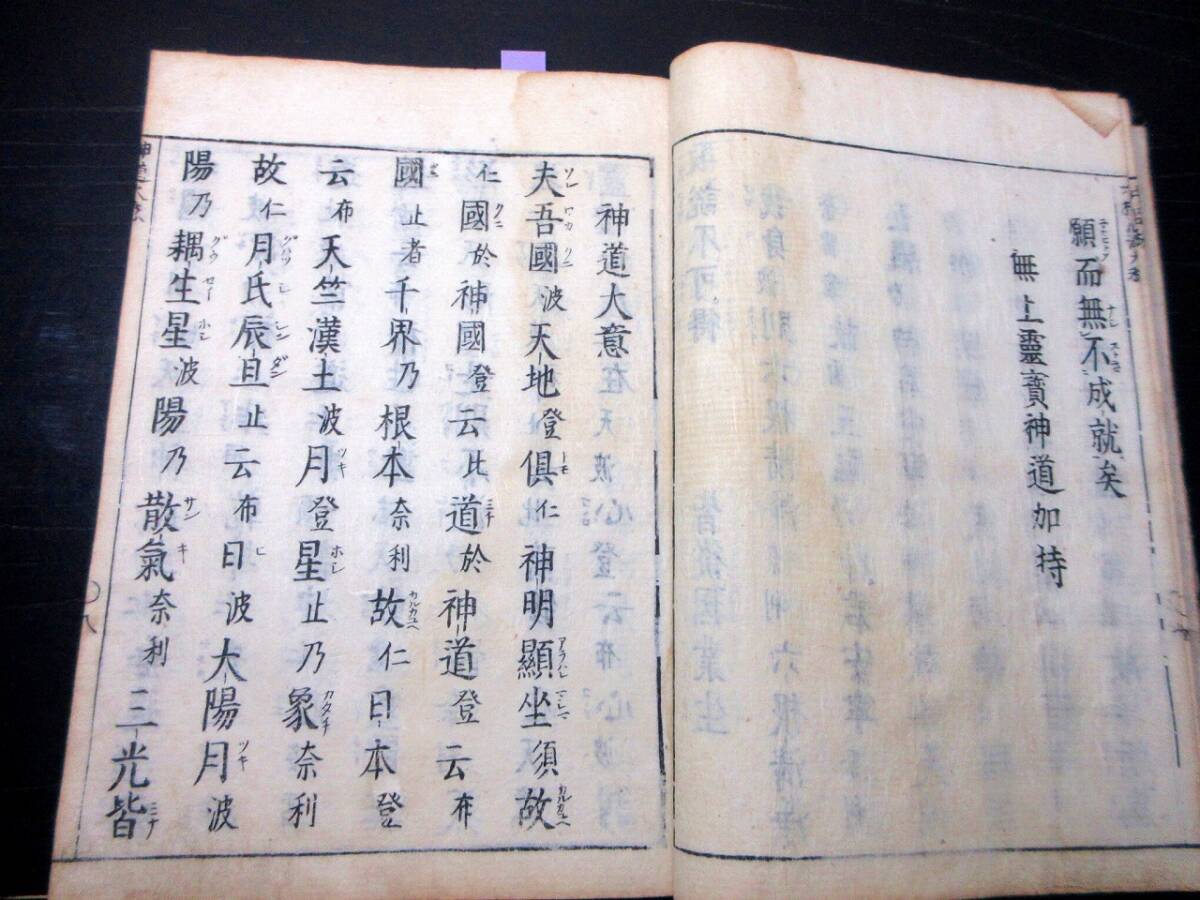 願而無不成就矣
無上靈寳神道加持
神道大意
夫吾國波天地登俱仁神明顯坐須故
仁國於神國登云比道於神道登云布
國止者千界乃根本奈利故仁日本登
云布天竺漢土波月登星止乃象奈利
故仁月氏辰旦止云布日波大陽月波
陽乃耦生星波陽乃散氣奈利三光皆